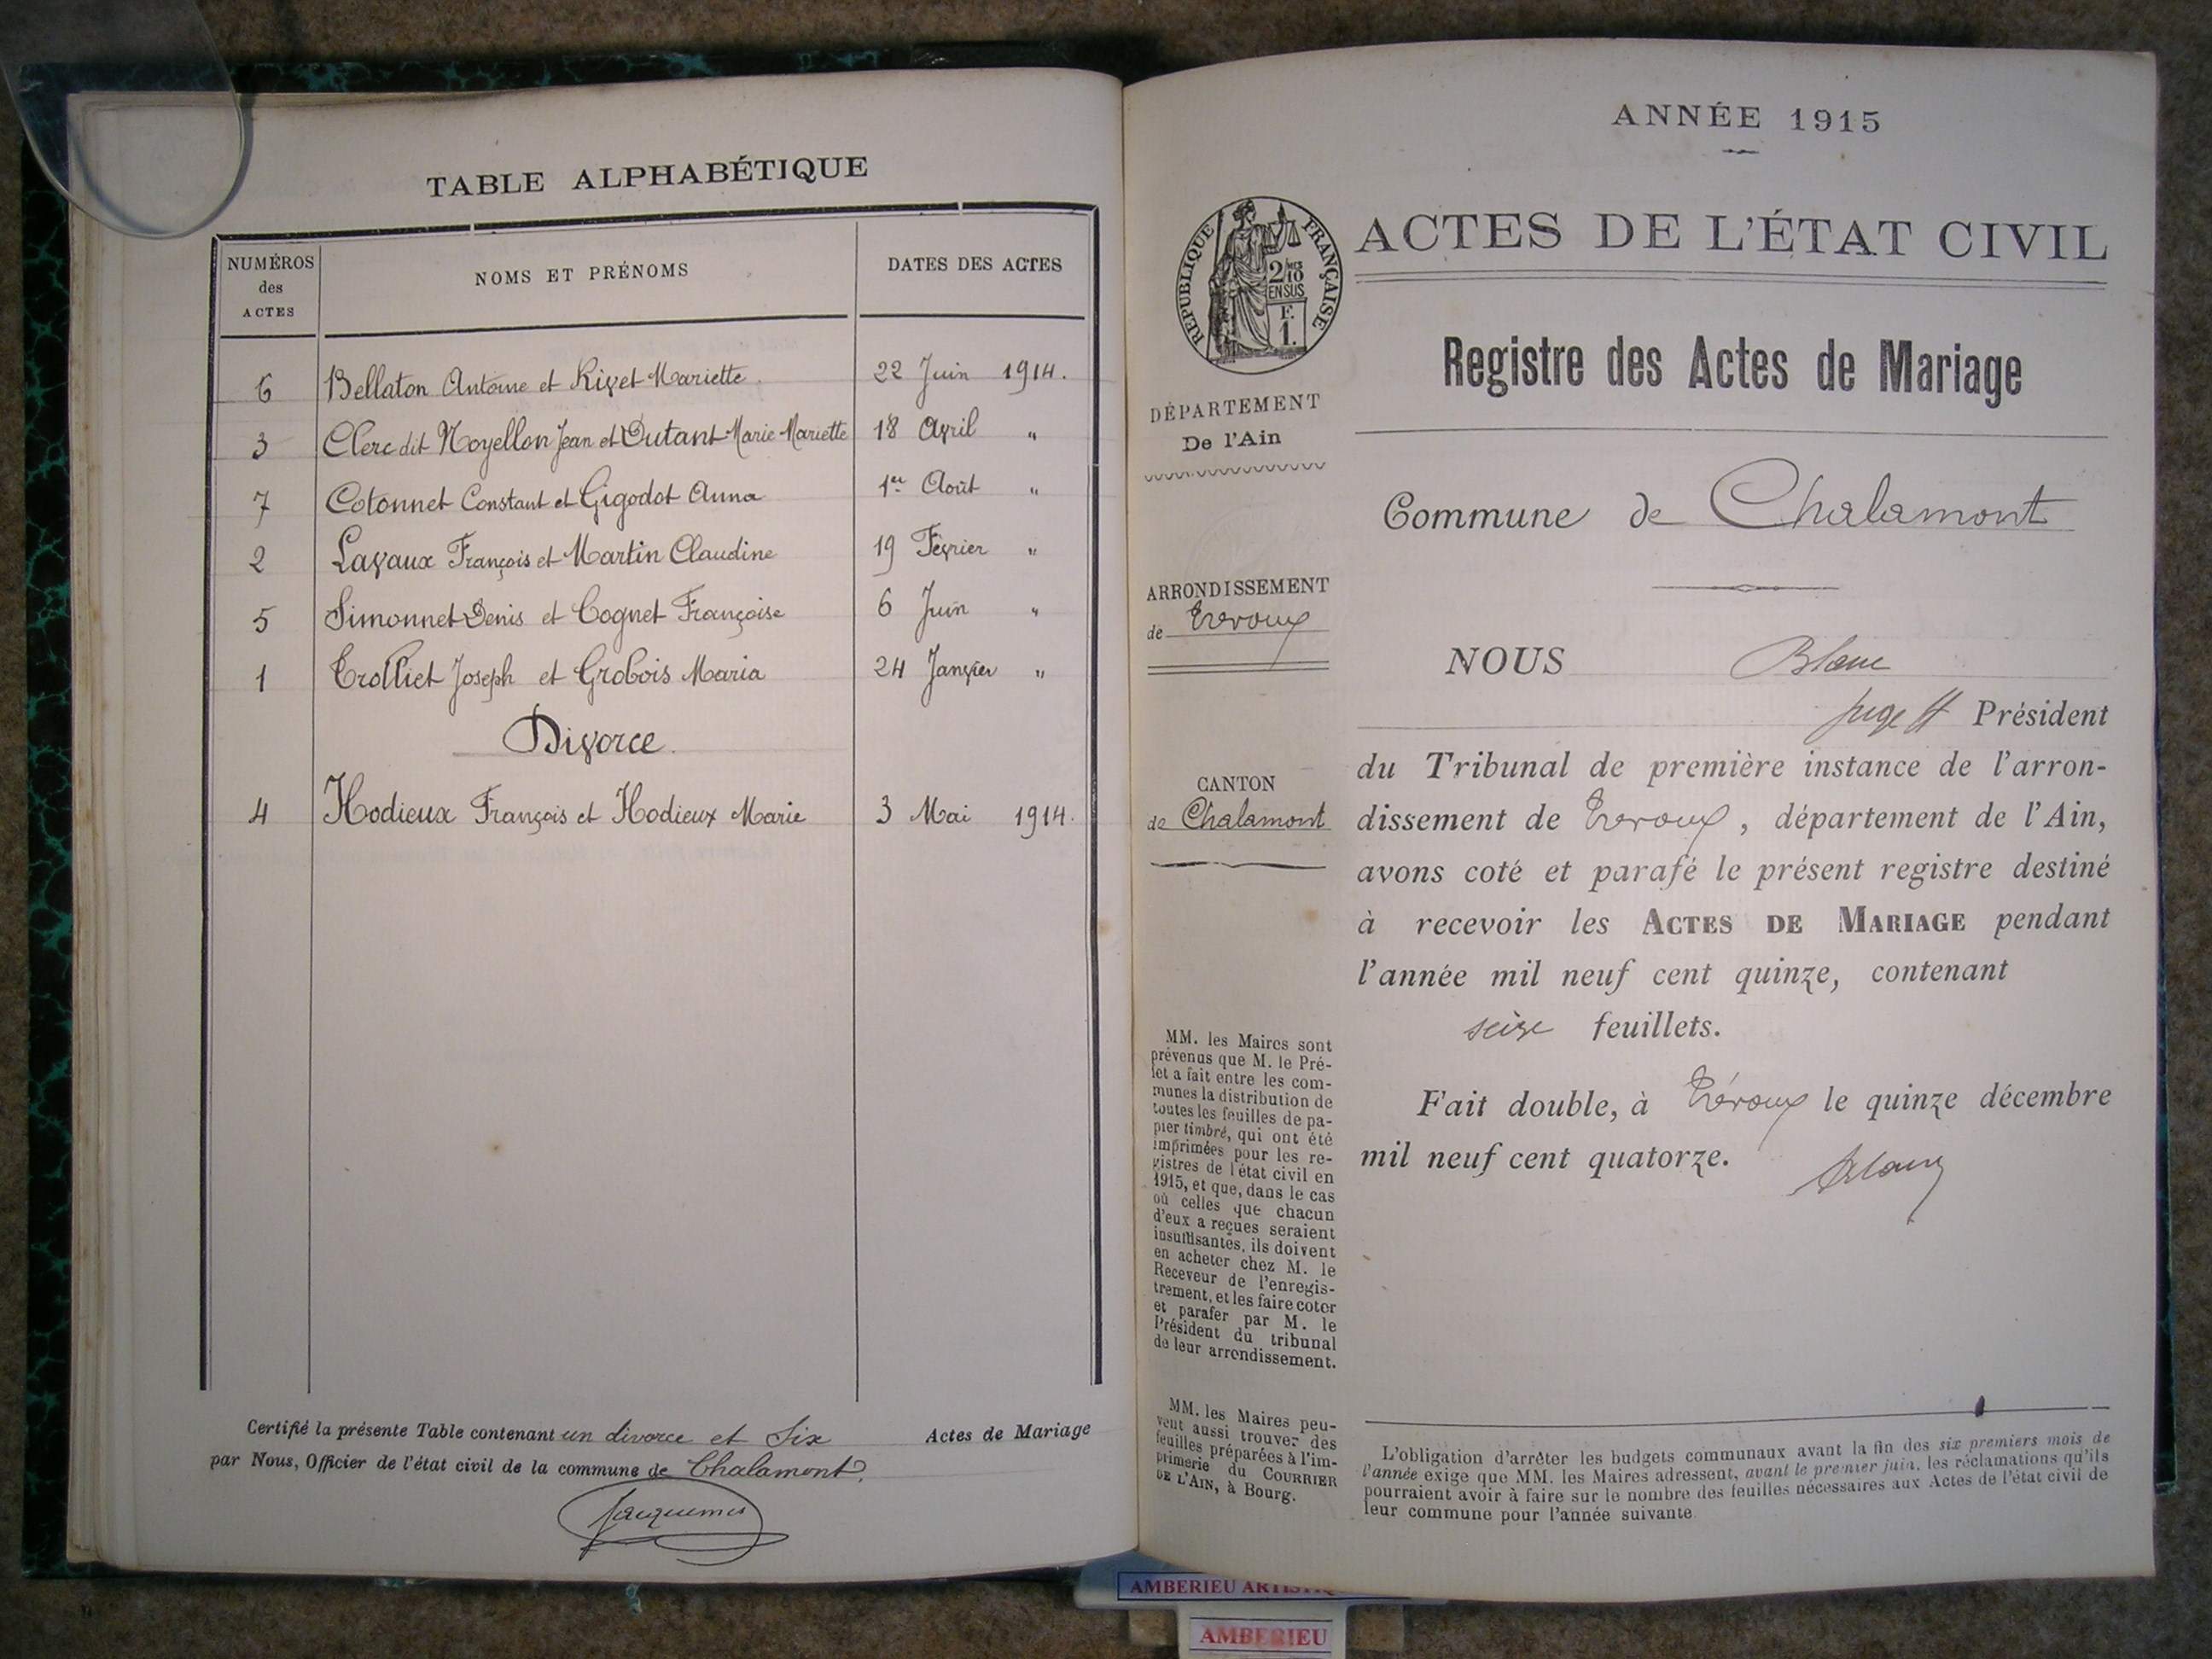 TABLE ALPHABÉTIQUE
NUMÉROS des ACTES NOMS ET PRÉNOMS DATES DES ACTES
6 Bellaton Antoine et Rivet Mariette 22 Juin 1914.
3 Clerc dit Noyellon Jean et Dutant Marie Mariette 18 Avril "
7 Cotonnet Constant et Gigodot Anna 1er Août "
2 Lavaux François et Martin Claudine 19 Février "
5 Simonnet Denis et Cognet Françoise 6 Juin "
1 Trolliet Joseph et Grobois Maria 24 Janvier "
Divorce
4 Hodieux François et Hodieux Marie 3 Mai 1914.
Certifié la présente Table contenant un divorce et Six Actes de Mariage
par Nous, Officier de l'état civil de la commune de Chalamont.
ANNÉE 1915
RÉPUBLIQUE FRANÇAISE
2/10 EN SUS
F. 1.
ACTES DE L'ÉTAT CIVIL
Registre des Actes de Mariage
DÉPARTEMENT
De l'Ain
Commune de Chalamont
ARRONDISSEMENT
de Trévoux
CANTON
de Chalamont
NOUS Blanc
juge ff Président
du Tribunal de première instance de l'arron-
dissement de Trévoux, département de l'Ain,
avons coté et parafé le présent registre destiné
à recevoir les ACTES DE MARIAGE pendant
l'année mil neuf cent quinze, contenant
seize feuillets.
Fait double, à Trévoux le quinze décembre
mil neuf cent quatorze.
Blanc
MM. les Maires sont
prévenus que M. le Pré-
fet a fait entre les com-
munes la distribution de
toutes les feuilles de pa-
pier timbré, qui ont été
imprimées pour les re-
gistres de l'état civil en
1915, et que, dans le cas
où celles que chacun
d'eux a reçues seraient
insuffisantes, ils doivent
en acheter chez M. le
Receveur de l'enregis-
trement, et les faire coter
et parafer par M. le
Président du tribunal
de leur arrondissement.
MM. les Maires peu-
vent aussi trouver des
feuilles préparées à l'im-
primerie du COURRIER
DE L'AIN, à Bourg.
L'obligation d'arrêter les budgets communaux avant la fin des six premiers mois de
l'année exige que MM. les Maires adressent, avant le premier juin, les réclamations qu'ils
pourraient avoir à faire sur le nombre des feuilles nécessaires aux Actes de l'état civil de
leur commune pour l'année suivante.
AMBERIEU
AMBERIEU